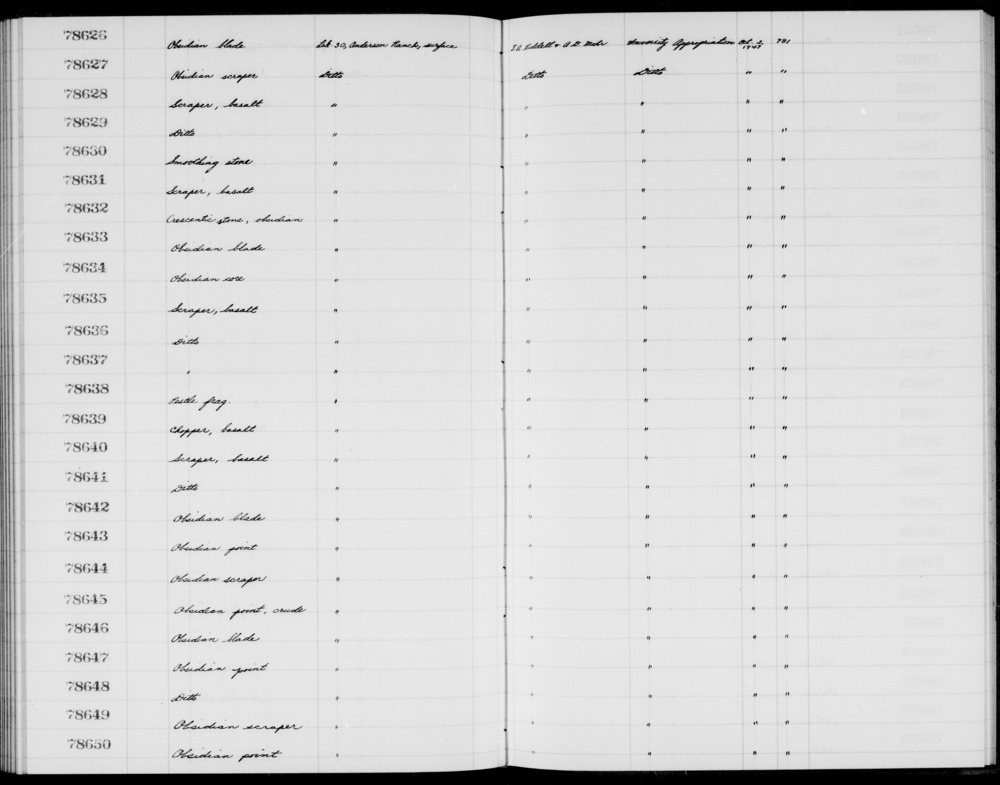 78626 Obsidian blade Lak 30, Anderson Ranch, surface F.A. Riddell & A.D. Mohr University Appropriation Oct. 2, 1947 781
78627 Obsidian scraper Ditto Ditto Ditto " "
78628 Scraper, basalt " " " " "
78629 Ditto " " " " "
78630 Smoothing stone " " " " "
78631 Scraper, basalt " " " " "
78632 Crescentic stone, obsidian " " " " "
78633 Obsidian blade " " " " "
78634 Obsidian core " " " " "
78635 Scraper, basalt " " " " "
78636 Ditto " " " " "
78637 " " " " " "
78638 Pestle frag. " " " " "
78639 Chopper, basalt " " " " "
78640 Scraper, basalt " " " " "
78641 Ditto " " " " "
78642 Obsidian blade " " " " "
78643 Obsidian point " " " " "
78644 Obsidian scraper " " " " "
78645 Obsidian point, crude " " " " "
78646 Obsidian blade " " " " "
78647 Obsidian point " " " " "
78648 Ditto " " " " "
78649 Obsidian scraper " " " " "
78650 Obsidian point " " " " "